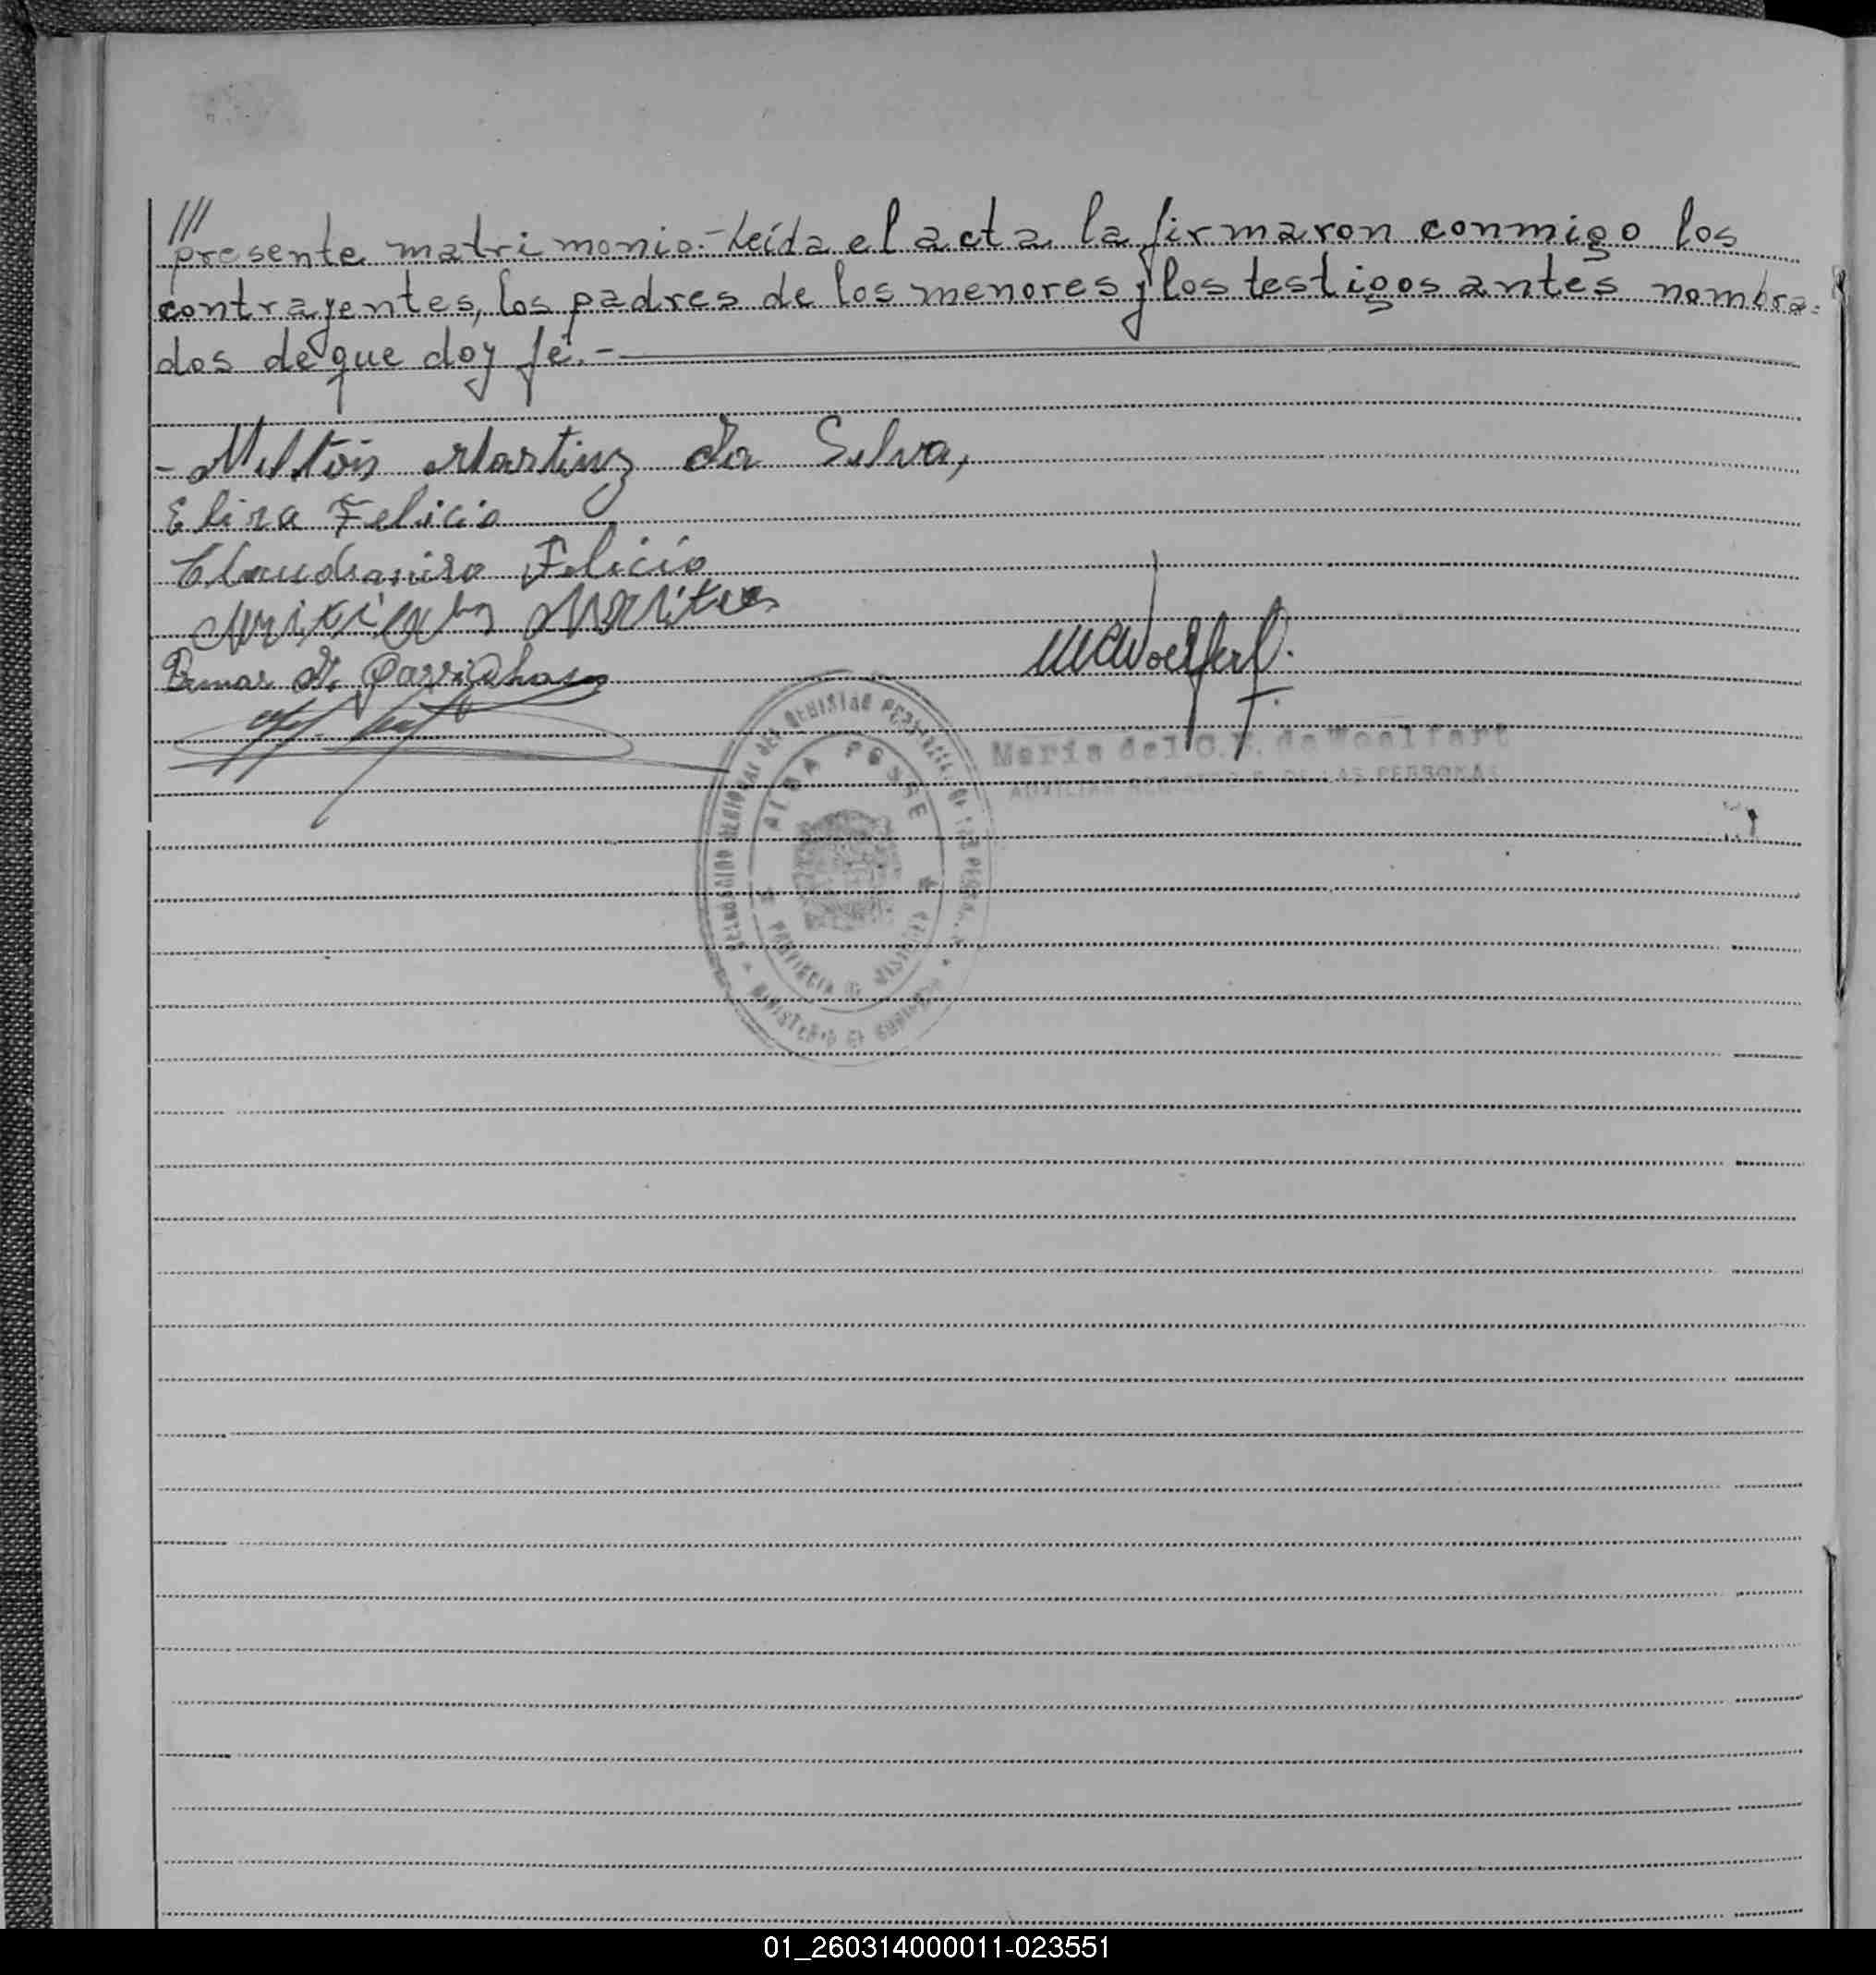 ///
presente matrimonio.- Leída el acta la firmaron conmigo los
contrayentes, los padres de los menores y los testigos antes nombra-
dos de que doy fé.-
- Milton Martinz da Silva,
Elira Felicio
Claudiomiro Felicio
MCWoelfert.
Maria del C. F. de Woelfert
AUXILIAR REGISTRO P. DE LAS PERSONAS
ALBA POSSE
PROVINCIA DE MISIONES
MINISTERIO DE GOBIERNO
01_260314000011-023551